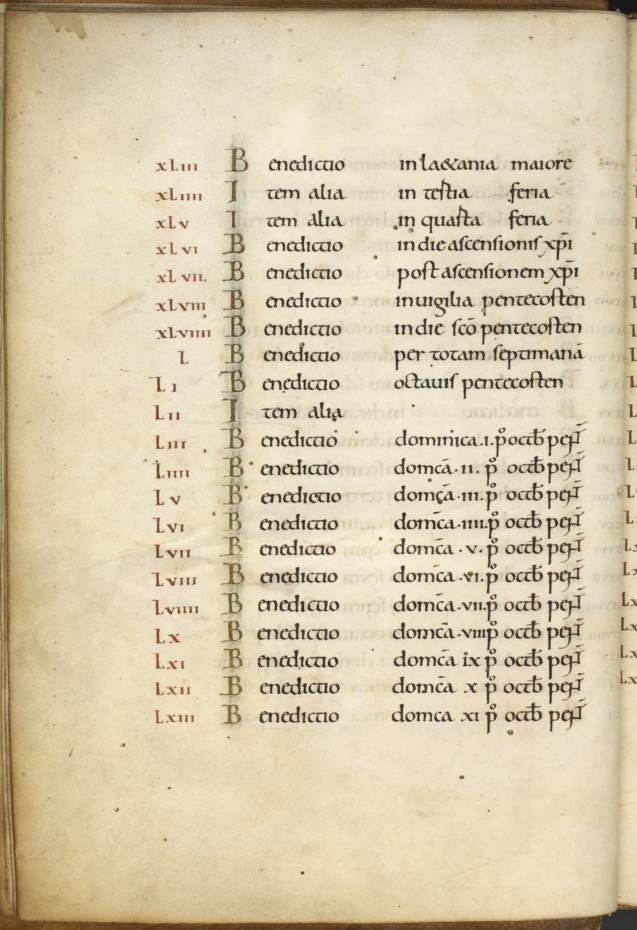 xLiii Benedictio in la&ania maiore
xLiiii Item alia in tertia feria
xLv Item alia in quarta feria
xLvi Benedictio in die ascensionis xp̄i
xLvii. Benedictio post ascensionem xp̄i
xLviii Benedictio in uigilia pentecosten
xLviiii Benedictio in die sc̄o pentecosten
L Benedictio per totam septimanā
Li Benedictio octauis pentecosten
Lii Item alia
Liii Benedictio dominica .i. p̊ octb̄ pen̄t
Liiii Benedictio domc̄a .ii. p̊ octb̄ pen̄t
Lv Benedictio domc̄a .iii. p̊ octb̄ pen̄t
Lvi Benedictio domc̄a .iiii. p̊ octb̄ pen̄t
Lvii Benedictio domc̄a .v. p̊ octb̄ pen̄t
Lviii Benedictio domc̄a .vi. p̊ octb̄ pen̄t
Lviiii Benedictio domc̄a .vii. p̊ octb̄ pen̄t
Lx Benedictio domc̄a .viii p̊ octb̄ pen̄t
Lxi Benedictio domc̄a ix p̊ octb̄ pen̄t
Lxii Benedictio domc̄a x p̊ octb̄ pen̄t
Lxiii Benedictio domca xi p̊ octb̄ pen̄t